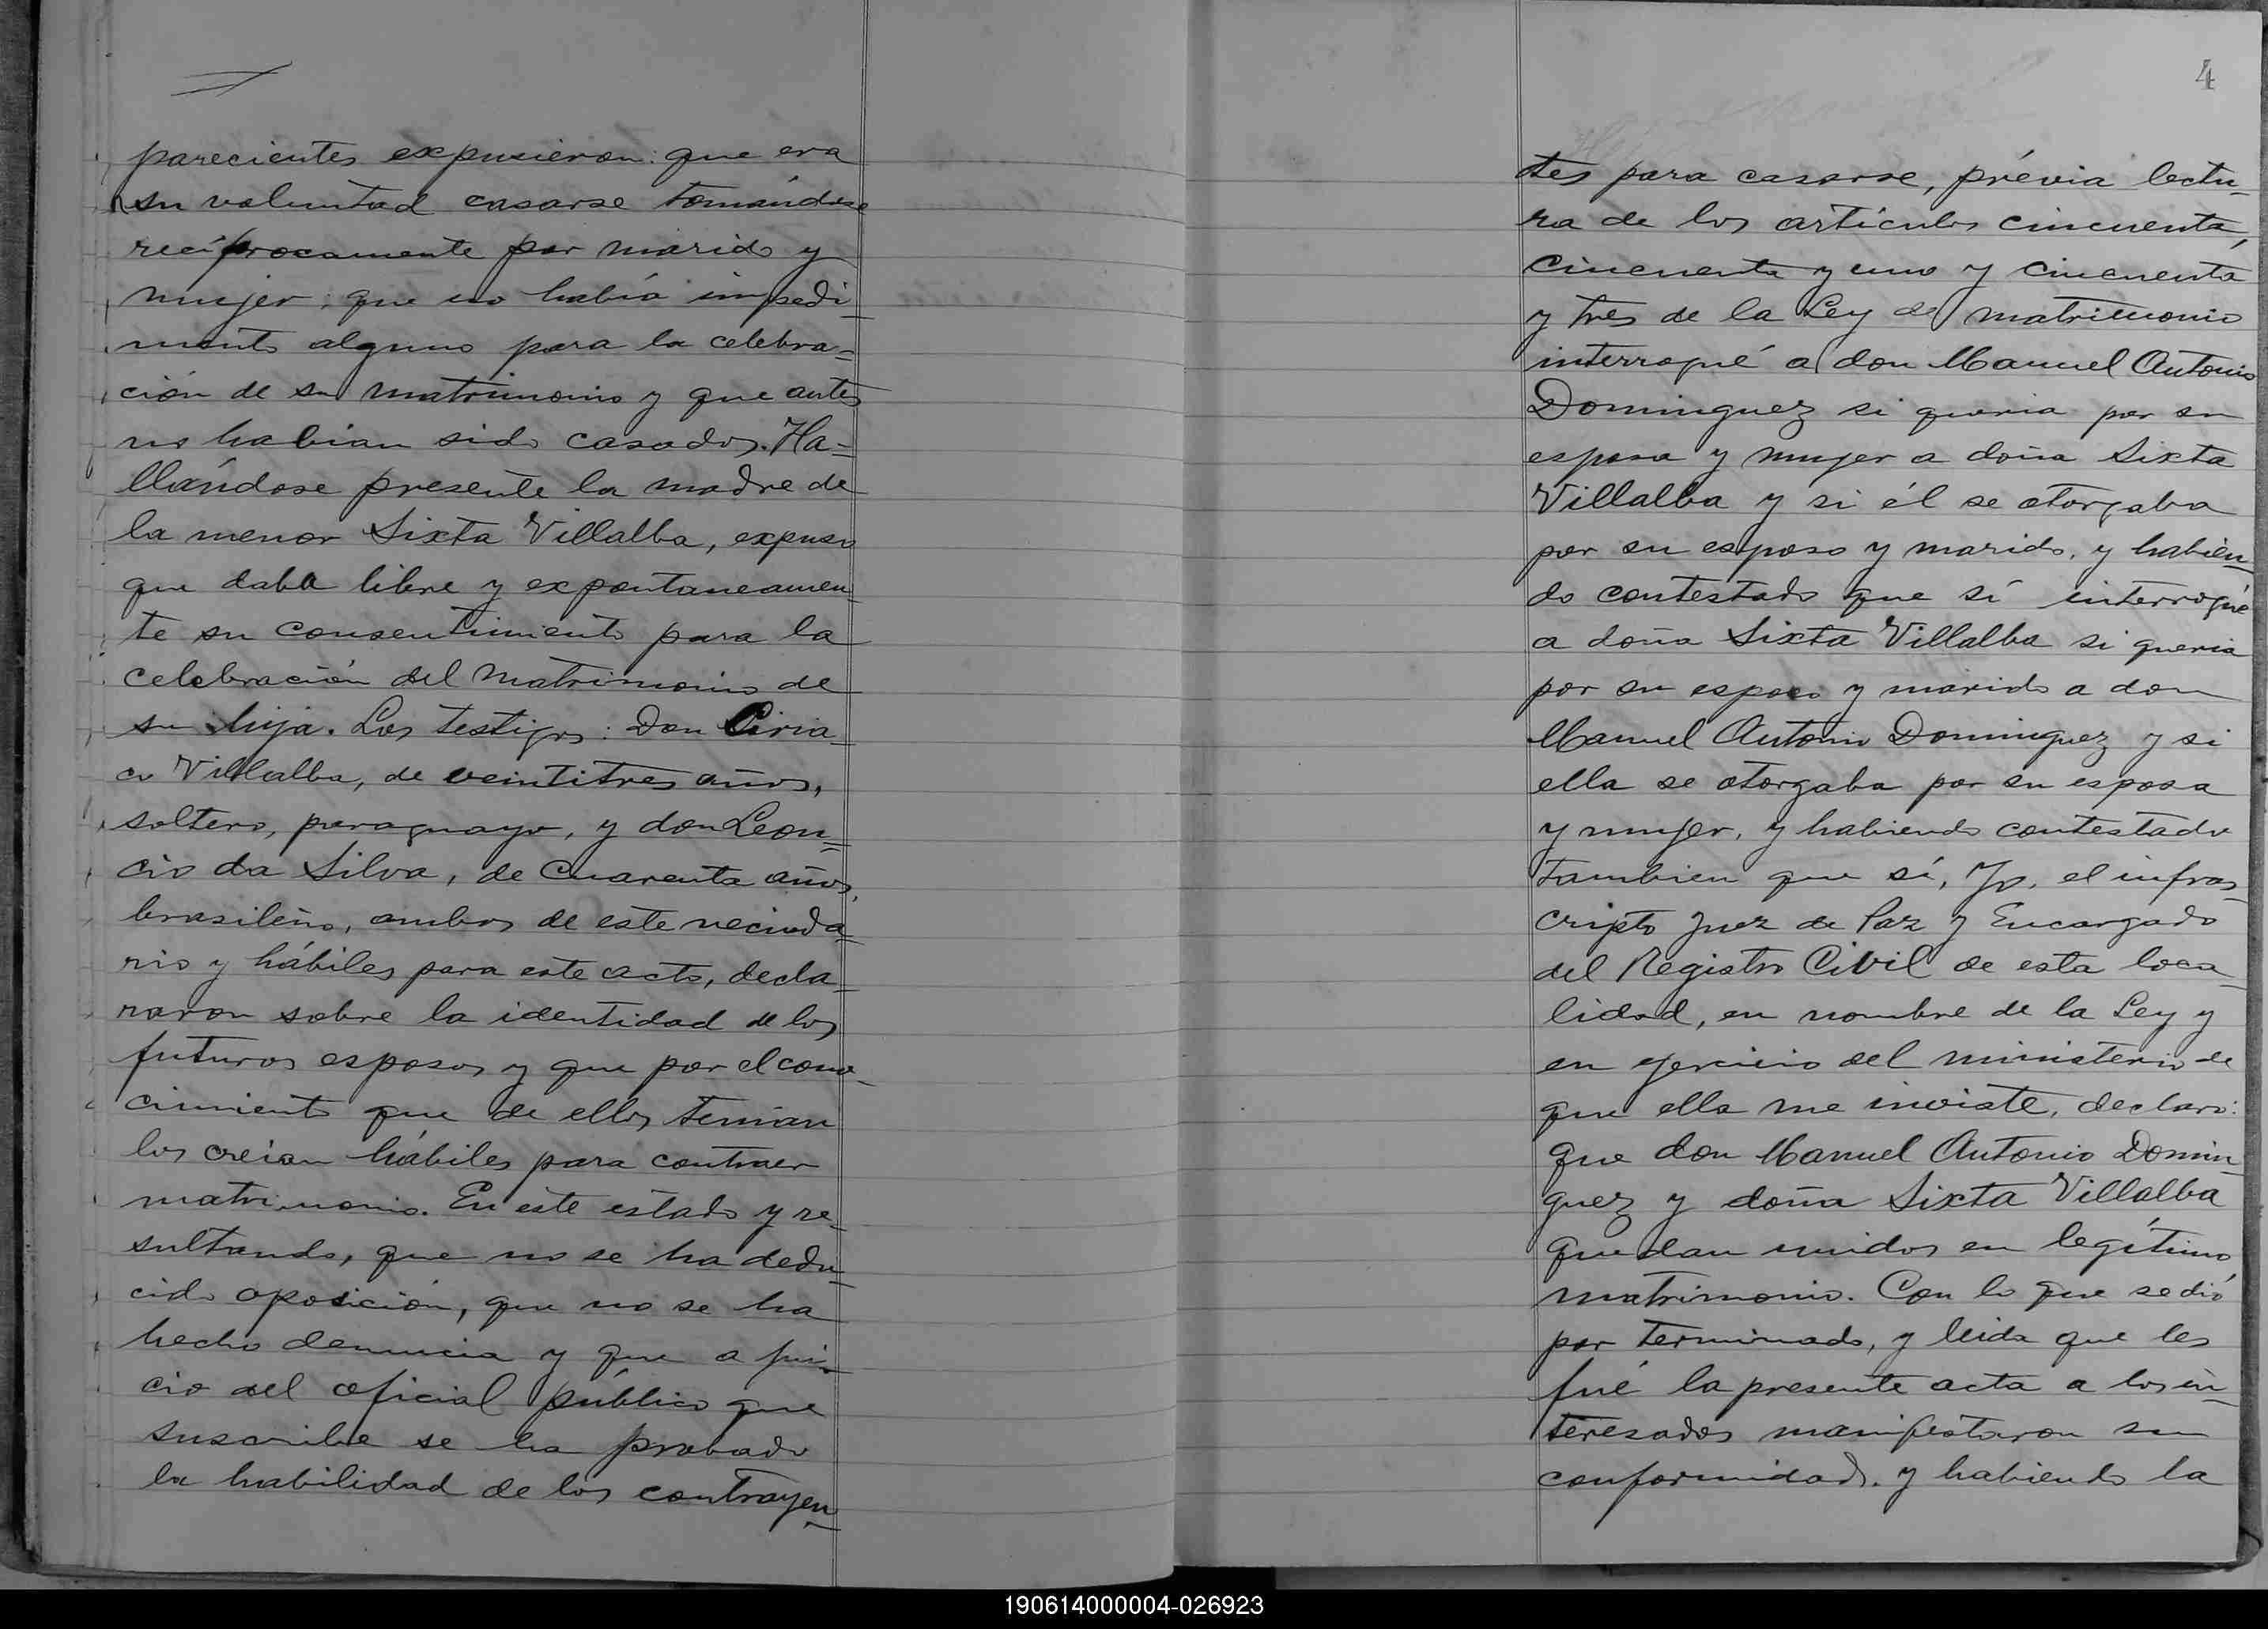 parecientes expusieron: que era
su voluntad casarse tomándose
recíprocamente por marido y
mujer; que no había impedi-
mento alguno para la celebra=
ción de su matrimonio y que antes
no habian sido casados. Ha=
llándose presente la madre de
la menor Sixta Villalba, expuso
que daba libre y expontaneamen-
te su consentimiento para la
celebración del matrimonio de
su hija. Los testigos: Don Ciria-
co Villalba, de veintitres años,
soltero, paraguayo, y don Leon=
cio da Silva, de cuarenta años,
brasileño, ambos de este vecinda=
rio y hábiles para este acto, decla-
raron sobre la identidad de los
futuros esposos y que por el cono-
cimiento que de ellos tenian
los creian hábiles para contraer
matrimonio. En este estado y re-
sultando, que no se ha dedu=
cido oposición, que no se ha
hecho denuncia y que a jui-
cio del oficial público que
suscribe se ha probado
la habilidad de los contrayen-
4
tes para casarse, prévia lectu-
ra de los artículos cincuenta,
cincuenta y uno y cincuenta
y tres de la Ley de matrimonio
interrogué a don Manuel Antonio
Dominguez si queria por su
esposa y mujer a doña Sixta
Villalba y si él se otorgaba
por su esposo y marido, y habien-
do contestado que sí interrogué
a doña Sixta Villalba si queria
por su esposo y marido a don
Manuel Antonio Dominguez y si
ella se otorgaba por su esposa
y mujer, y habiendo contestado
tambien que sí, Yo, el infras-
cripto Juez de Paz y Encargado
del Registro Civil de esta loca-
lidad, en nombre de la Ley y
en ejercicio del ministerio de
que ella me inviste, declaro:
que don Manuel Antonio Domin-
guez y doña Sixta Villalba
quedan unidos en legítimo
matrimonio. Con lo que se dió
por terminado, y leida que les
fué la presente acta a los in-
teresados manifestaron su
conformidad. y habiendo la
190614000004-026923